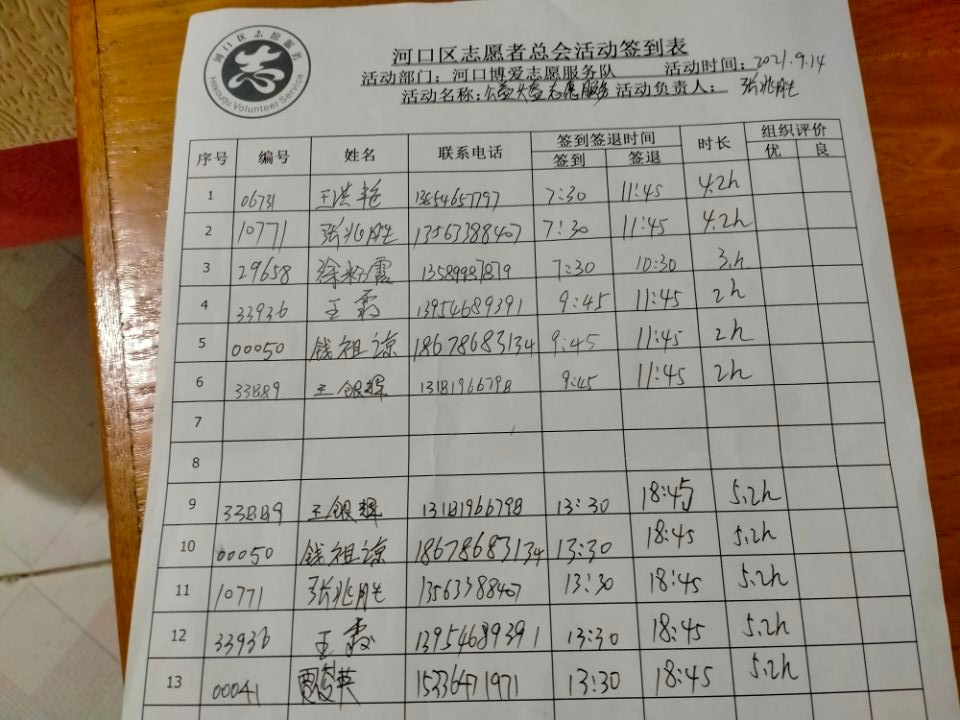 河口区志愿服务
志
Hekouqu Volunteer Service
河口区志愿者总会活动签到表
活动部门：河口博爱志愿服务队 活动时间：2021.9.14
活动名称：公益 志愿服务 活动负责人：张兆胜
序号 编号 姓名 联系电话 签到签退时间 时长 组织评价
签到 签退 优 良
1 06731 王洪艳 13654657797 7:30 11:45 4.2h
2 10771 张兆胜 13563388407 7:30 11:45 4.2h
3 29658 徐 霞 13589987879 7:30 10:30 3.h
4 33936 王霞 13954689391 9:45 11:45 2h
5 00050 钱祖谅 18678683134 9:45 11:45 2h
6 33889 王银辉 13181966798 9:45 11:45 2h
7
8
9 33889 王银辉 13181966798 13:30 18:45 5.2h
10 00050 钱祖谅 18678683134 13:30 18:45 5.2h
11 10771 张兆胜 13563388407 13:30 18:45 5.2h
12 33936 王霞 13954689391 13:30 18:45 5.2h
13 00041 英 15336471971 13:30 18:45 5.2h